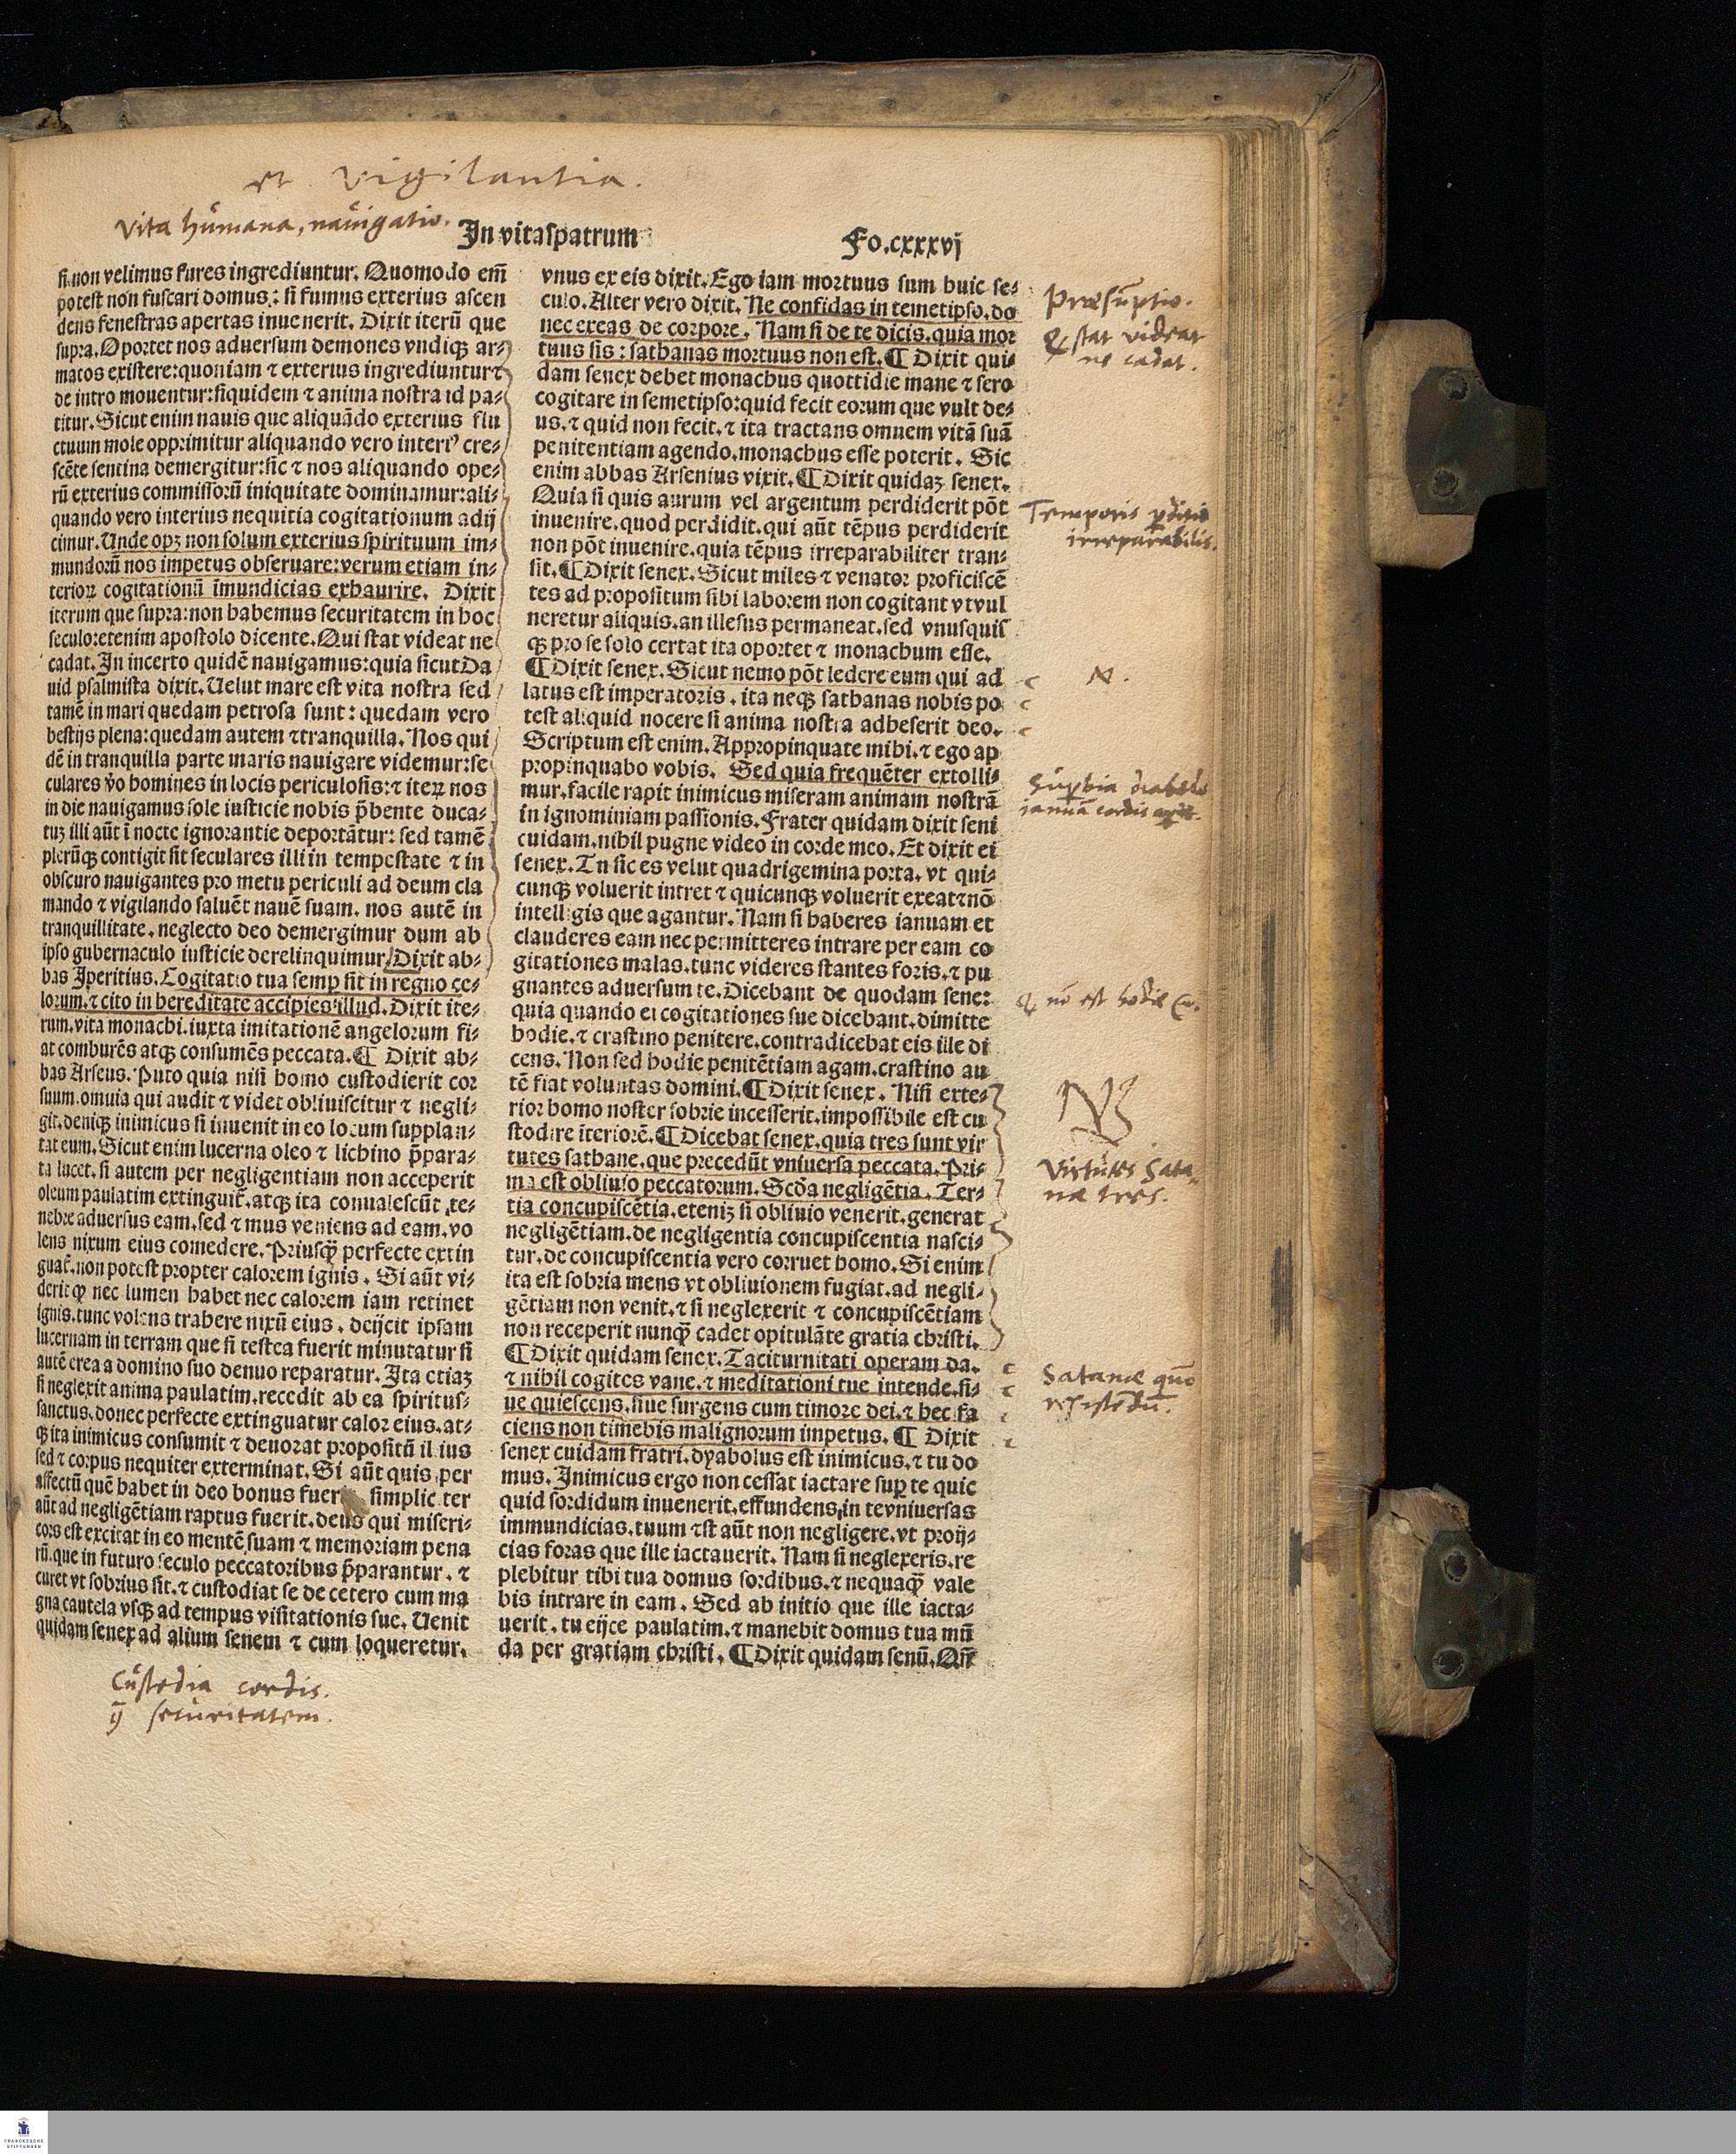 et Vigilantia.
Vita humana, nauigatio.
In vitaspatrum
Fo.cxxxvj
si non velimus fures ingrediuntur. Quomodo em̄
potest non fuscari domus: si fumus exterius ascen
dens fenestras apertas inuenerit. Dixit iterū que
supra. Oportet nos aduersum demones vndiqꝫ ar-
matos existere: quoniam ⁊ exterius ingrediuntur ⁊
de intro mouentur: siquidem ⁊ anima nostra id pa-
titur. Sicut enim nauis que aliquādo exterius flu
ctuum mole opprimitur aliquando vero interiꝰ cre-
scēte sentina demergitur: sic ⁊ nos aliquando ope-
rū exterius commissorū iniquitate dominamur: ali-
quando vero interius nequitia cogitationum adij
cimur. Unde opꝫ non solum exterius spirituum im-
mundorū nos impetus obseruare: verum etiam in-
teriorꝝ cogitationū īmundicias exhaurire. Dixit
iterum que supra: non habemus securitatem in hoc
seculo: etenim apostolo dicente. Qui stat videat ne
cadat. In incerto quidē nauigamus: quia sicut Da
uid psalmista dixit. Uelut mare est vita nostra sed
tamē in mari quedam petrosa sunt: quedam vero
bestijs plena: quedam autem ⁊ tranquilla. Nos qui
dē in tranquilla parte maris nauigare videmur: se
culares v̄o homines in locis periculosis: ⁊ iterꝝ nos
in die nauigamus sole iusticie nobis p̄bente duca-
tuꝫ illi aūt ī nocte ignorantie deportātur: sed tamē
plerūqꝫ contigit sit seculares illi in tempestate ⁊ in
obscuro nauigantes pro metu periculi ad deum cla
mando ⁊ vigilando saluēt nauē suam. nos autē in
tranquillitate. neglecto deo demergimur dum ab
ipso gubernaculo iusticie derelinquimur. Dixit ab-
bas Iperitius. Cogitatio tua semp sit in regno ce-
lorum. ⁊ cito in hereditate accipies illud. Dixit ite-
rum. vita monachi. iuxta imitationē angelorum fi-
at comburēs atqꝫ consumēs peccata. ¶ Dixit ab-
bas Arseus. Puto quia nisi homo custodierit cor
suum. omnia qui audit ⁊ videt obliuiscitur ⁊ negli-
git. deniqꝫ inimicus si inuenit in eo locum supplan-
tat eum. Sicut enim lucerna oleo ⁊ lichino p̄para-
ta lucet. si autem per negligentiam non acceperit
oleum paulatim extinguit̄. atqꝫ ita conualescūt te-
nebre aduersus eam. sed ⁊ mus veniens ad eam. vo
lens nixum eius comedere. Priusqꝫ̄ perfecte extin
guat̄. non potest propter calorem ignis. Si aūt vi-
derit qꝫ nec lumen habet nec calorem iam retinet
ignis. tunc volens trahere nixū eius. deijcit ipsam
lucernam in terram que si testea fuerit minutatur si
autē erea a domino suo denuo reparatur. Ita etiaꝫ
si neglexit anima paulatim. recedit ab ea spiritus-
sanctus. donec perfecte extinguatur calor eius. at-
qꝫ ita inimicus consumit ⁊ deuorat propositū illius
sed ⁊ corpus nequiter exterminat. Si aūt quis per
affectū quē habet in deo bonus fueri simpliciter
aūt ad negligētiam raptus fuerit. deus qui miseri-
cors est excitat in eo mentē suam ⁊ memoriam pena
rū. que in futuro seculo peccatoribus p̄parantur. ⁊
curet vt sobrius sit. ⁊ custodiat se de cetero cum ma
gna cautela vsqꝫ ad tempus visitationis sue. Uenit
quidam senex ad alium senem ⁊ cum loqueretur.
Custodia cordis.
securitatem.
vnus ex eis dixit. Ego iam mortuus sum huic se-
culo. Alter vero dixit. Ne confidas in temetipso. do
nec exeas de corpore. Nam si de te dicis. quia mor
tuus sis: sathanas mortuus non est. ¶ Dixit qui-
dam senex debet monachus quottidie mane ⁊ sero
cogitare in semetipso: quid fecit eorum que vult de-
us. ⁊ quid non fecit. ⁊ ita tractans omnem vitā suā
penitentiam agendo. monachus esse poterit. Sic
enim abbas Arsenius vixit. ¶ Dixit quidaꝫ senex.
Quia si quis aurum vel argentum perdiderit pōt
inuenire. quod perdidit. qui aūt tēpus perdiderit
non pōt inuenire. quia tēpus irreparabiliter tran-
sit. ¶ Dixit senex. Sicut miles ⁊ venator proficiscē
tes ad propositum sibi laborem non cogitant vt vul
neretur aliquis. an illesus permaneat. sed vnusquis
qꝫ pro se solo certat ita oportet ⁊ monachum esse.
¶ Dixit senex. Sicut nemo pōt ledere eum qui ad
latus est imperatoris. ita neqꝫ sathanas nobis po
test aliquid nocere si anima nostra adheserit deo.
Scriptum est enim. Appropinquate mihi. ⁊ ego ap
propinquabo vobis. Sed quia frequēter extolli-
mur. facile rapit inimicus miseram animam nostrā
in ignominiam passionis. Frater quidam dixit seni
cuidam. nihil pugne video in corde meo. Et dixit ei
senex. Tu sic es velut quadrigemina porta. vt qui-
cunqꝫ voluerit intret ⁊ quicunqꝫ voluerit exeat ⁊ nō
intelligis que agantur. Nam si haberes ianuam et
clauderes eam nec permitteres intrare per eam co
gitationes malas. tunc videres stantes foris. ⁊ pu
gnantes aduersum te. Dicebant de quodam sene:
quia quando ei cogitationes sue dicebant. dimitte
hodie. ⁊ crastino penitere. contradicebat eis ille di
cens. Non sed hodie penitētiam agam. crastino au
tē fiat voluntas domini. ¶ Dixit senex. Nisi exte-
rior homo noster sobrie incesserit. impossibile est cu
stodire īteriorē. ¶ Dicebat senex. quia tres sunt vir
tutes sathane. que precedūt vniuersa peccata. Pri-
ma est obliuio peccatorum. Scd̄a negligētia. Ter-
tia concupiscētia. eteniꝫ si obliuio venerit. generat
negligētiam. de negligentia concupiscentia nasci-
tur. de concupiscentia vero corruet homo. Si enim
ita est sobria mens vt obliuionem fugiat. ad negli-
gētiam non venit. ⁊ si neglexerit ⁊ concupiscētiam
non receperit nunqꝫ̄ cadet opitulāte gratia christi.
¶ Dixit quidam senex. Taciturnitati operam da.
⁊ nihil cogites vane. ⁊ meditationi tue intende. si-
ue quiescens. siue surgens cum timore dei. ⁊ hec fa
ciens non timebis malignorum impetus. ¶ Dixit
senex cuidam fratri. dyabolus est inimicus. ⁊ tu do
mus. Inimicus ergo non cessat iactare sup te quic
quid sordidum inuenerit. effundens in te vniuersas
immundicias. tuum est aūt non negligere. vt proij-
cias foras que ille iactauerit. Nam si neglexeris. re
plebitur tibi tua domus sordibus. ⁊ nequaqꝫ̄ vale
bis intrare in eam. Sed ab initio que ille iacta-
uerit. tu eijce paulatim. ⁊ manebit domus tua mū
da per gratiam christi. ¶ Dixit quidam senū. Qn̄
Præsūptio.
Q stat videat
ne cadat.
Temporis pditio
irreparabilis.
N.
Supbia diabolo
ianuā cordis
Q nō est hodie
NB
Virtutes Sata
næ tres.
Satanæ quō
resistēdū.
FRANCKESCHE
STIFTUNGEN